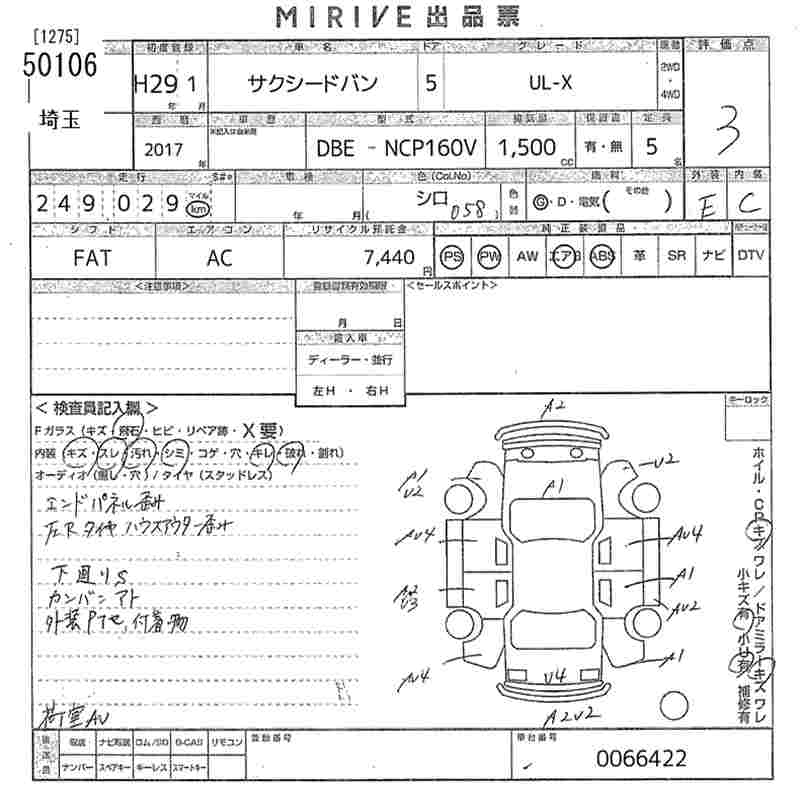 MIRIVE出品票
[1275]
50106
埼玉
初度登録 車名 ドア グレード 駆動 評価点
H29 1 サクシードバン 5 UL-X 2WD・4WD
年 月
3
西暦 車歴 型式 排気量 保証書 定員
2017 年 DBE - NCP160V 1,500 CC 有・無 5 名
走行 車検 色(Col.No) 燃料 外装 内装
249029 マイル km 年 月( シロ 058) 色替 G・D・電気( その他 ) E C
シフト エアコン リサイクル預託金 純正装備品
FAT AC 7,440 円 PS PW AW エアB ABS 革 SR ナビ DTV
<注意事項> 登録書類有効期限 <セールスポイント>
月 日
輸入車
ディーラー・並行
左H ・ 右H
キーロック
<検査員記入欄>
Fガラス(キズ・飛石・ヒビ・リペア跡・X要)
内装(キズ・スレ・汚れ・シミ・コゲ・穴・キレ・破れ・割れ)
オーディオ(無し・穴)/タイヤ(スタッドレス)
エンドパネル歪み
左Rタイヤハウスアウター歪み
下廻りS
カンバンアト
外装Pケ, 付着物
荷室AU
A2
A1
U2
U2
A1
AU4
AU4
A1
A2
U3
AU2
AU4
A1
U4
A2U2
ホイル・CP キズ ワレ / ドアミラー キズ ワレ
小キズ有 小U有 補修有
後送品 取説 ナビ取説 ロム/SD B-CAS リモコン 登録番号 車台番号
ナンバー スペアキー キーレス スマートキー 0066422